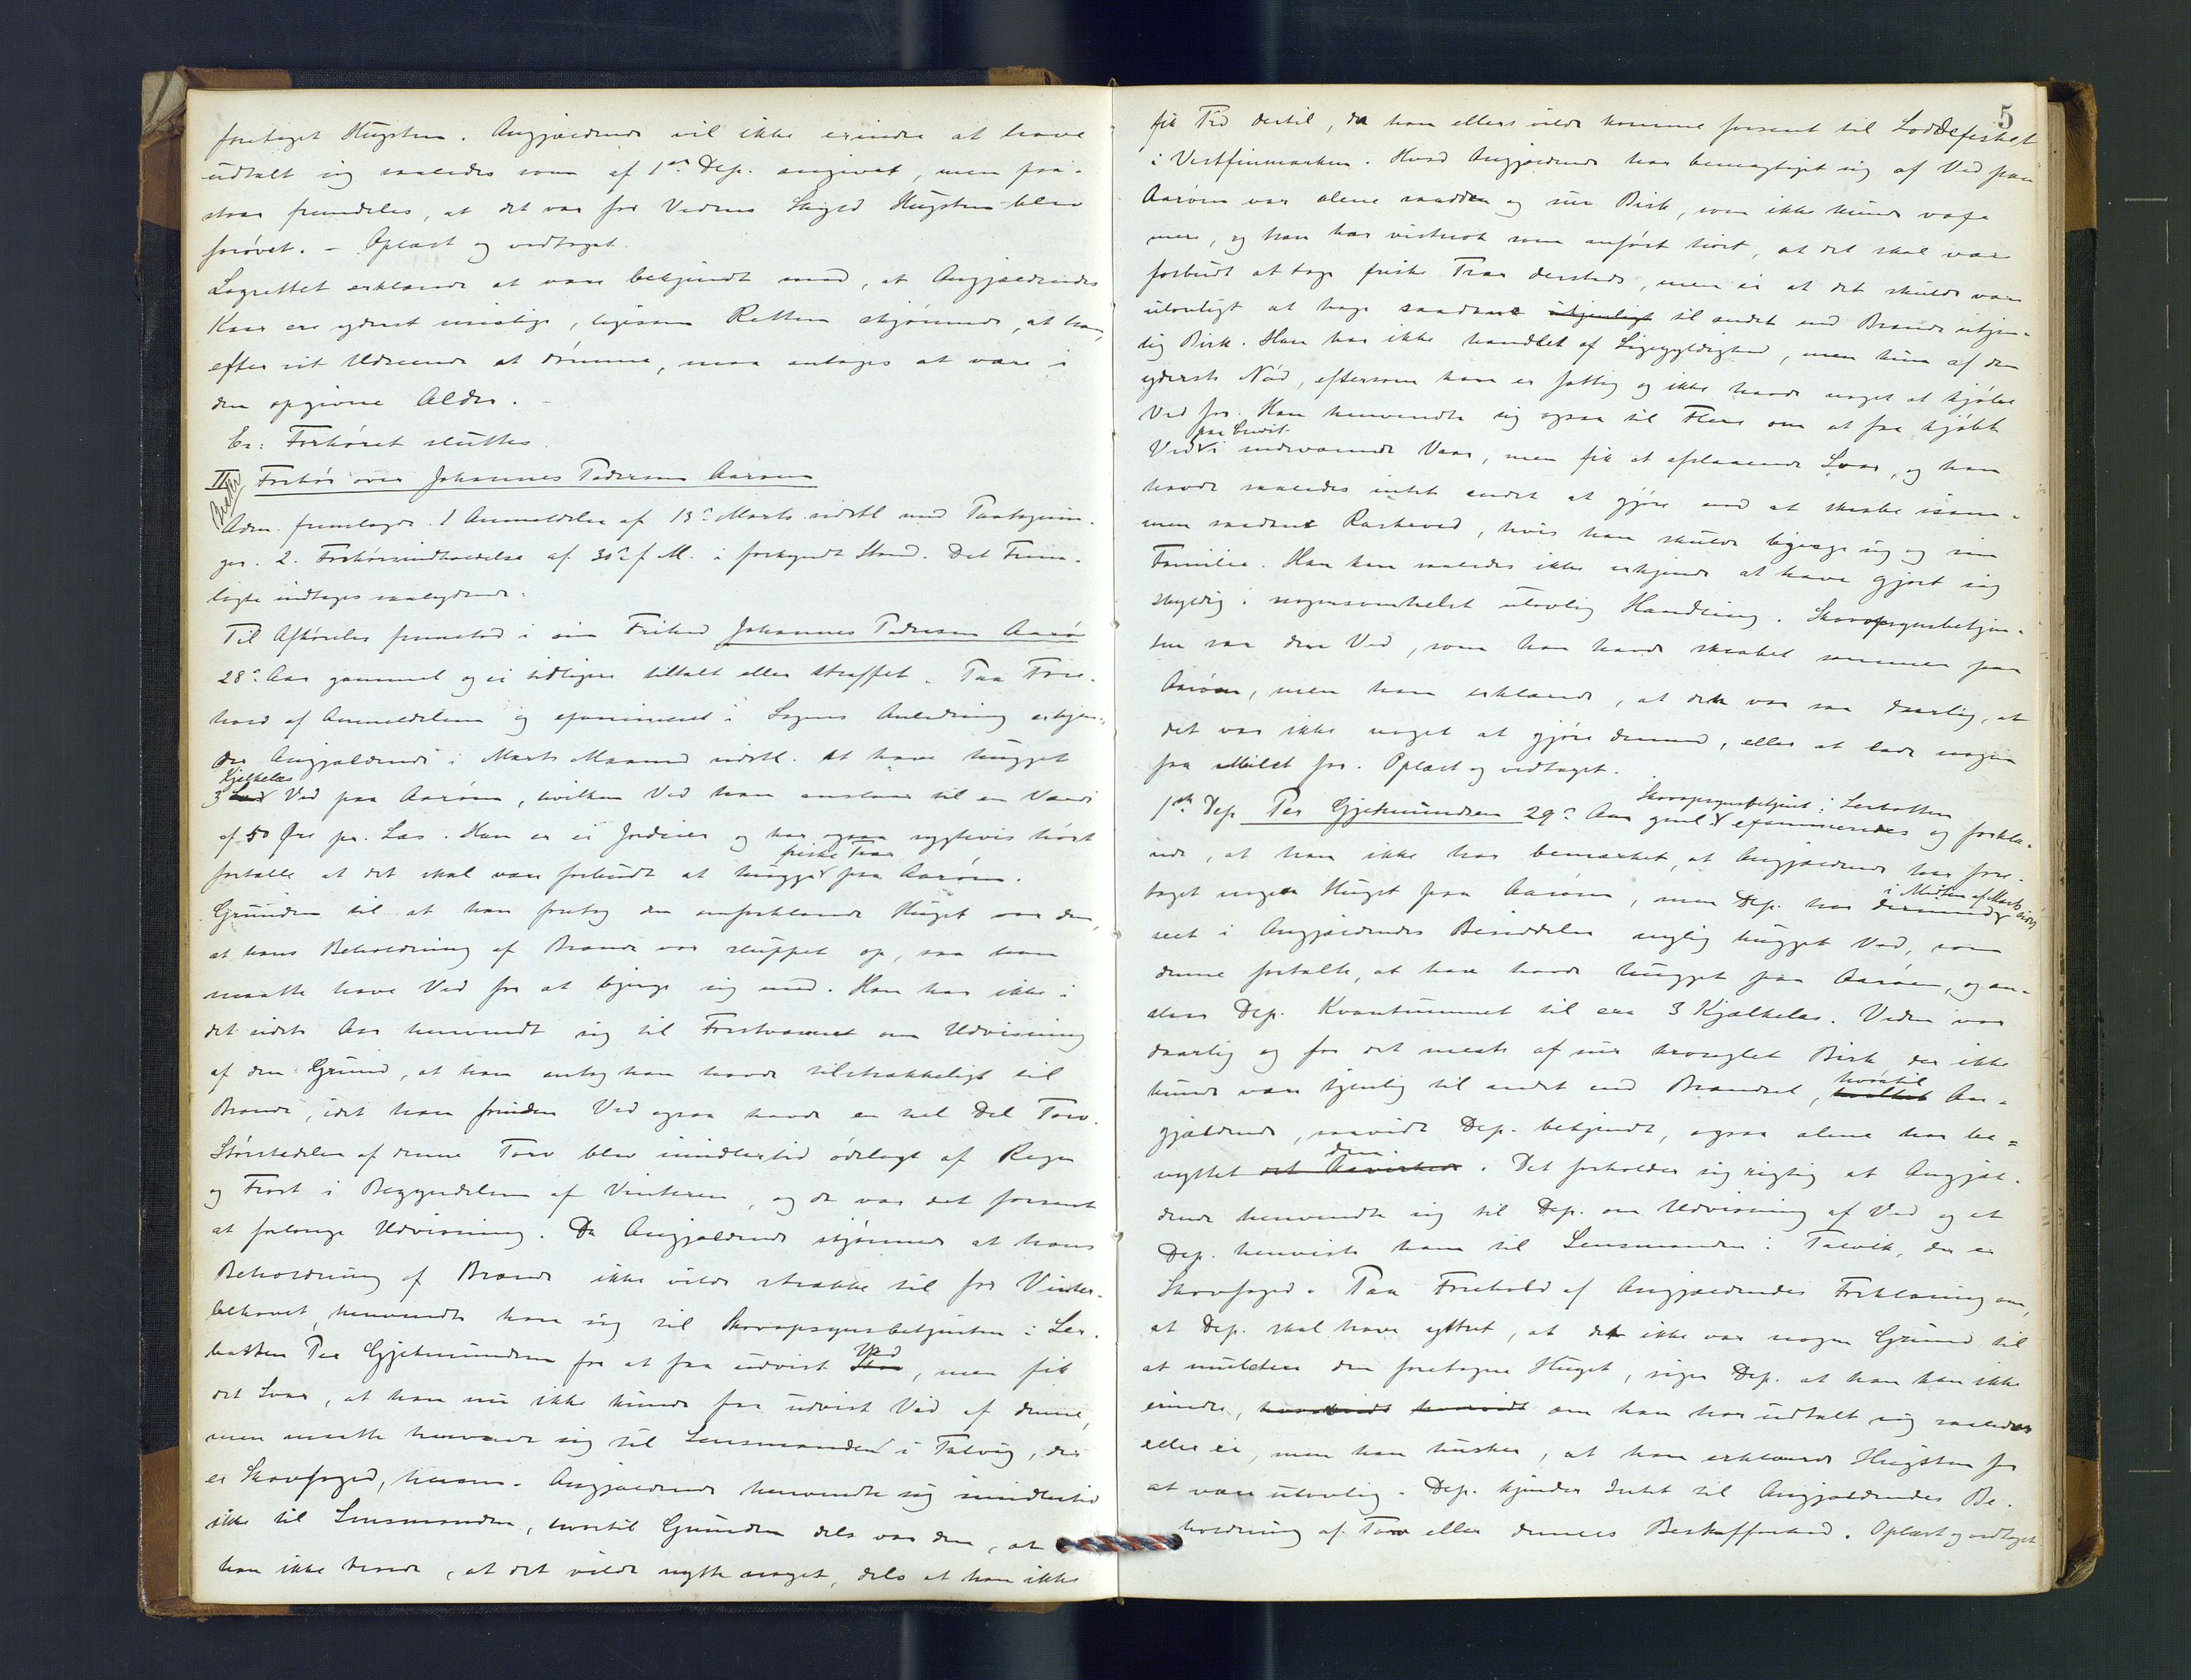 foretaget Hugsten. Angjældende vil ikke erindre at have
udtalt sig saaledes som af 1ste Dep. angivet, men paa-
staar fremdeles, at det var for Vedens Skyld Hugsten blev
forøvet. - Oplæst og vedtaget.
Lagrettet erklærede at være bekjendt med, at Angjældendes
Kaar ere yderst uselige, ligesom Retten skjønnede, at han,
efter sit Udseende at dømme, maa antages at være i
den opgivne Alder. -
Er: Forhøret sluttes.
II Forhør over Johannes Pedersen Aarøen
Adm. fremlagde 1 Anmeldelse af 13de Marts sidstl. med Paategnin-
ger. 2. Forhørsindkaldelse af 30te f. M. i forkyndt Stand. Det Frem-
lagte indtages saalydende.
Til Afhørelse fremstod i sin Frihed Johannes Pedersen Aarø
28de Aar gammel og ei tidligere tiltalt eller straffet. Paa Fore-
hold af Anmeldelsen og examineret i Sagens Anledning erkjen-
der Angjældende i Marts Maaned sidstl. at have hugget
3 Kjelkelæs Ved paa Aarøen, hvilken Ved han anslaar til en Værdi
af 50 Øre pr. Læs. Han er ei Jordeier og har ogsaa rygtevis hørt
fortælle at det skal være forbudt at hugge friske Trær paa Aarøen.
Grunden til at han foretog den omforklarede Hugst var den,
at hans Beholdning af Brænde var sluppet op, saa han
maatte have Ved for at bjerge sig med. Han har ikke i
det sidste Aar henvendt sig til Forstvæsenet om Udvisning
af den Grund, at han antog han havde tilstrækkeligt til
Brænde, idet han foruden Ved ogsaa havde en hel Del Torv.
Størstedelen af denne Torv blev imidlertid ødelagt af Regn
og Frost i Begyndelsen af Vinteren, og da var det forsent
at forlange Udvisning. Da Angjældende skjønnede at hans
Beholdning af Brænde ikke vilde strække til for Vinter-
behovet, henvendte han sig til Skovopsynsbetjenten i Ler-
botten Per Gjetmundsen for at faa udvist Ved, men fik
det Svar, at han nu ikke kunde faa udvist Ved af denne,
men maatte henvende sig til Lensmanden i Talvig, der
er Skovfoged, herom. Angjældende henvendte sig imidlertid
ikke til Lensmanden, hvortil Grunden dels var den, at
han ikke troede, at det vilde nytte noget, dels at han ikke
5
fik Tid dertil, da han ellers vilde komme forsent til Loddefisket
i Vestfinmarken. Hvad Angjældende har bemægtiget sig af Ved paa
Aarøen var alene raadden og tør Birk, som ikke kunde voxe
mere, og han har vistnok som anført hørt, at det skal være
forbudt at tage friske Trær dersteds, men ei at det skulde være
ulovligt at tage saadant utjenligt til andet end Brænde utjen-
lig Birk. Han har ikke handlet af Ligegyldighed, men kun af den
yderste Nød, eftersom han er fattig og ikke havde noget at kjøbe
Ved for. Han henvendte sig ogsaa til Flere om at faa kjøbt
Ved paa Credit i indeværende Vaar, men fik et afslaaende Svar, og han
havde saaledes intet andet at gjøre end at skrabe isam-
men saadant Raskeved, hvis han skulde bjerge sig og sin
Familie. Han kan saaledes ikke erkjende at have gjort sig
skyldig i nogensomhelst ulovlig Handling. Skovopsynsbetjen-
ten saa den Ved, som han havde skrabet sammen paa
Aarøen, men han erklærede, at den var saa daarlig, at
det var ikke noget at gjøre dermed, eller at lade nogen
faa Mulct for. Oplæst og vedtaget.
1ste Dep. Per Gjetmundsen 29de Aar gml. Skovopsynsbetjent i Lerbotten examineredes og forkla-
rede, at han ikke har bemærket, at Angjældende har fore-
taget nogen Hugst paa Aarøen, men Dep. har i Midten af Marts sidstl.
seet i Angjældendes Besiddelse nylig hugget Ved, som
denne fortalte, at han havde hugget paa Aarøen, og an-
slaar Dep. Kvantummet til cra 3 Kjælkelæs. Veden var
daarlig og for det meste af tør kroglet Birk der ikke
kunde være tjenlig til andet end Brændsel, hvortil An-
gjældende, saavidt Dep. bekjendt, ogsaa alene har be=
nyttet den. Det forholder sig rigtig at Angjæl-
dende henvendte sig til Dep. om Udvisning af Ved og at
Dep. henviste ham til Lensmanden i Talvik, der er
Skovfoged. Paa Forehold af Angjældendes Forklaring om,
at Dep. skal have yttret, at det ikke var nogen Grund til
at mulctere den foretagne Hugst, siger Dep. at han kan ikke
erindre, om han har udtalt sig saaledes
eller ei, men han husker, at han erklærede Hugsten for
at være ulovlig. Dep. kjender Intet til Angjældendes Be-
holdning af Torv eller dennes Beskaffenhed. Oplæst og vedtaget